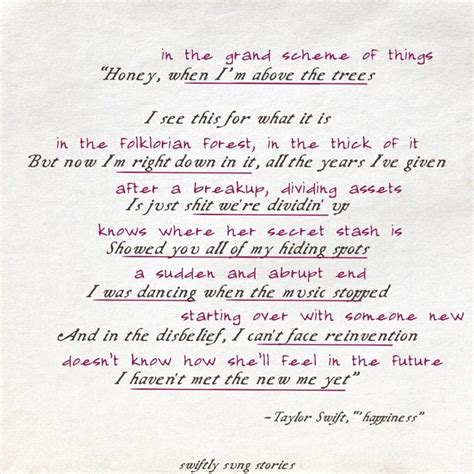 in the grand scheme of things
“Honey, when I'm above the trees
I see this for what it is
in the folklorian forest, in the thick of it
But now I'm right down in it, all the years I've given
after a breakup, dividing assets
Is just shit we're dividin' up
knows where her secret stash is
Showed you all of my hiding spots
a sudden and abrupt end
I was dancing when the music stopped
starting over with someone new
And in the disbelief, I can't face reinvention
doesn't know how she'll feel in the future
I haven't met the new me yet”
–Taylor Swift, “'happiness”
swiftly sung stories